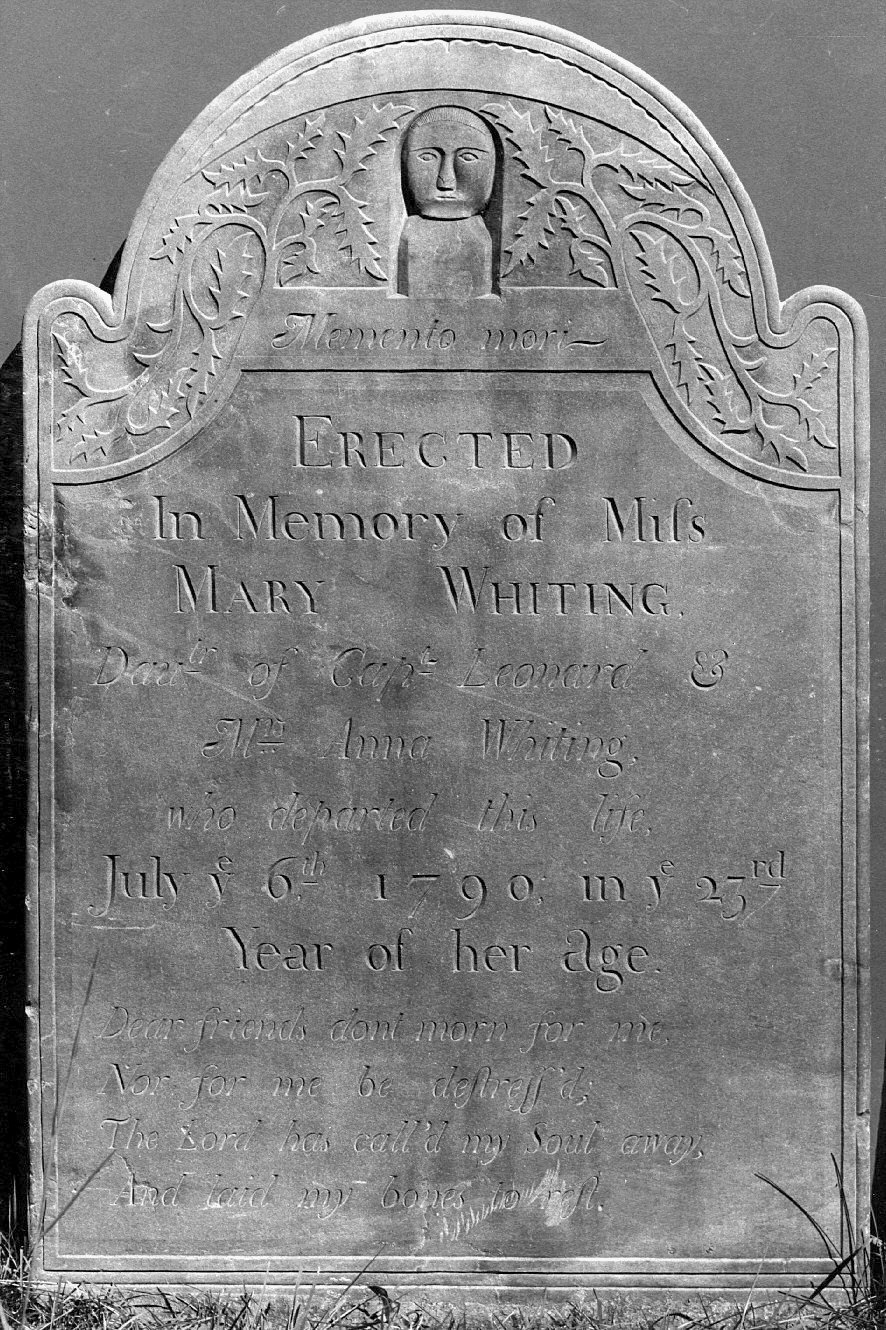 Memento mori
ERECTED
In Memory of Miſs
MARY WHITING.
Dauᵗʳ of Capᵗ Leonard &
Mʳˢ Anna Whiting,
who departed this life,
July yᵉ 6ᵗʰ 1790; in yᵉ 23ʳᵈ
Year of her age.
Dear friends dont morn for me,
Nor for me be deſtreſſ'd;
The Lord has call'd my Soul away,
And laid my bones to reſt.